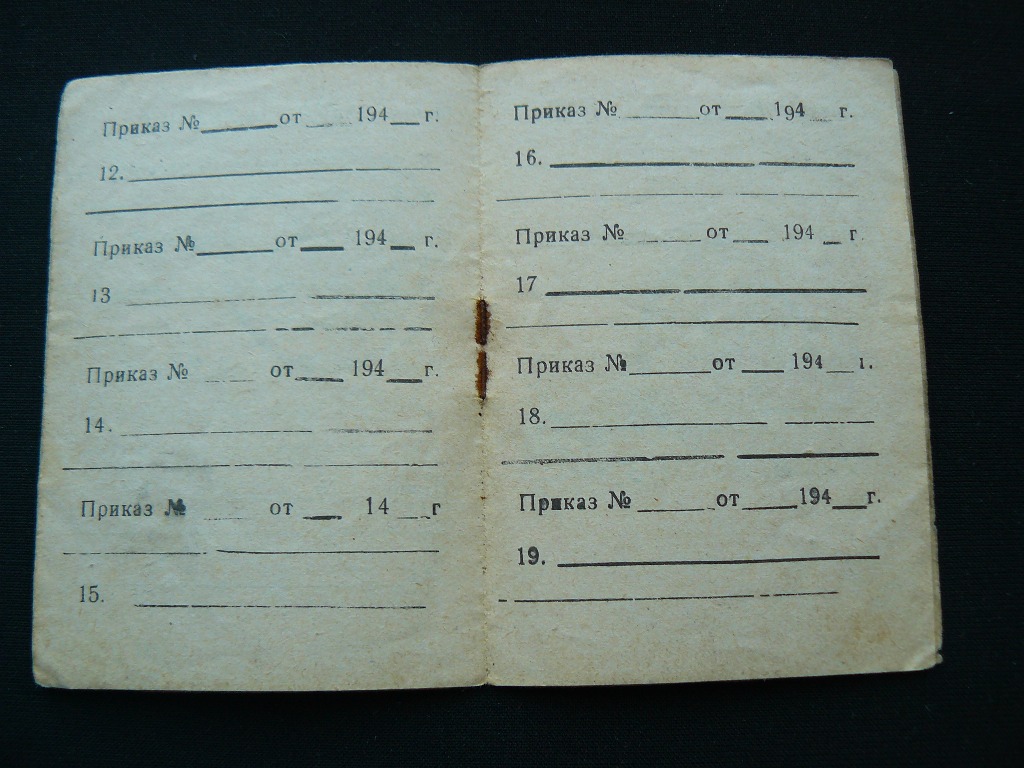 Приказ №______от____194__г.
12.______________________
Приказ №______от___194__г.
13______________________
Приказ № ____ от____194___г.
14.______________________
Приказ № ____ от ___ 14 ___г
15. ______________________
Приказ №______от____194__г.
16.______________________
Приказ № _____от___ 194 __г
17 ______________________
Приказ №______от ____ 194___г.
18.______________________
Приказ № ______от____194___г.
19. ______________________